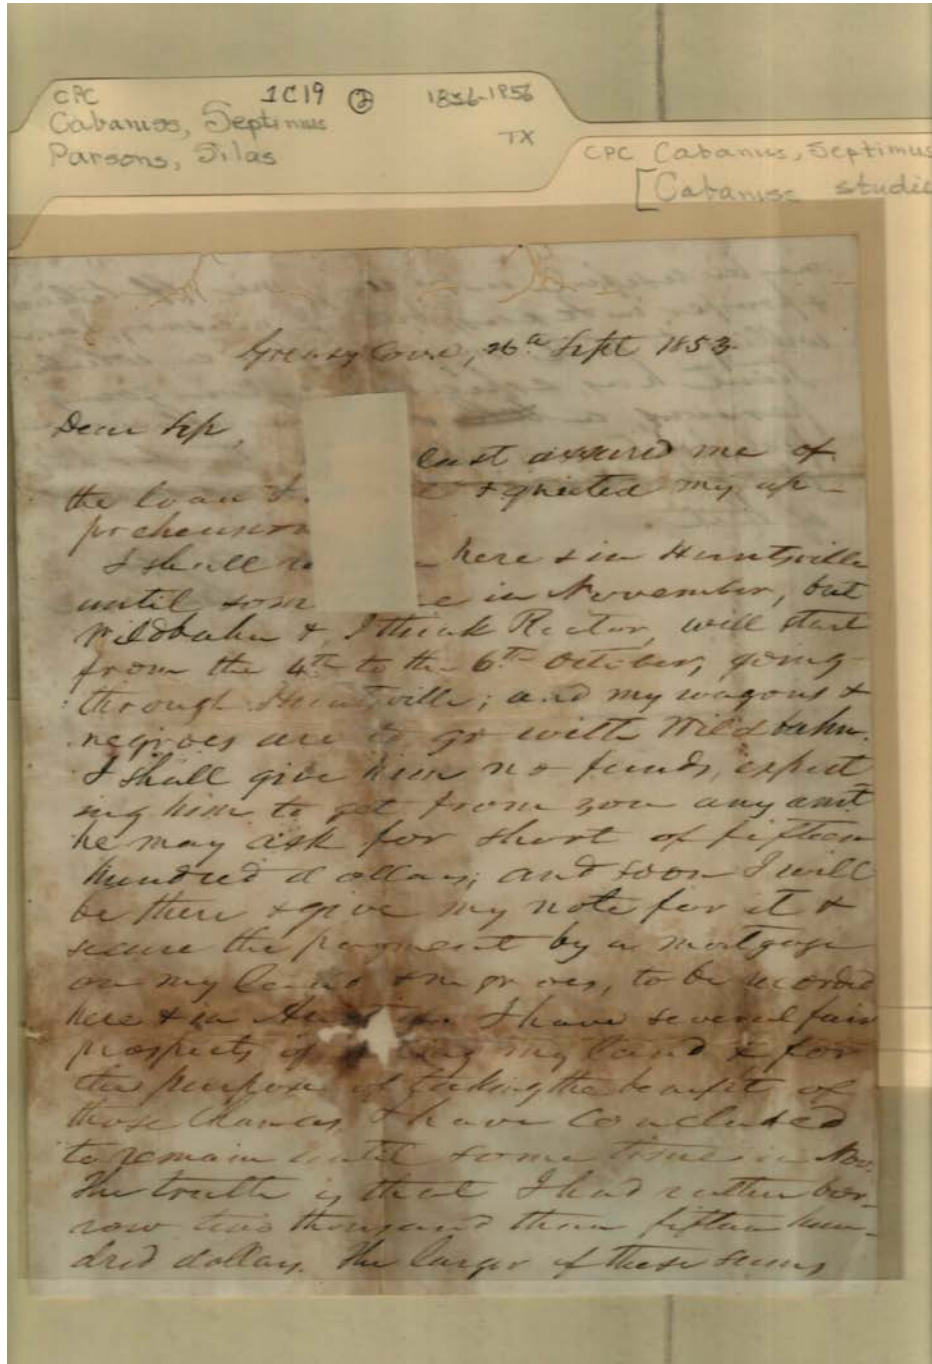 CPC 1C19 2 1836-1856
Cabaniss, Septimus
TX
Parsons, Silas
CPC Cabaniss, Septimus
[Cabaniss studie
Greasy Cove, 26th Sept 1853
Dear Sep,
last assured me of
the loan & & quieted my ap-
prehensions
I shall here & in Huntsville
until som in November, but
Wildbahn & I think Rector, will start
from the 4th to the 6th October, going
through Huntsville; and my wagons &
negroes are to go with Wildbahn.
I shall give him no funds, expect
ing him to get from you any amt
he may ask for short of fifteen
hundred dollars; and soon I will
be there & give my note for it &
secure the payment by a mortgage
on my land & negroes, to be recorded
here & in I have several fair
prospects of my land & for
the purpose of taking the benefit of
those chances I have concluded
to remain until some time in Nov.
The truth is that I had rather bor-
row two thousand than fifteen hun-
dred dollars. The larger of these sums